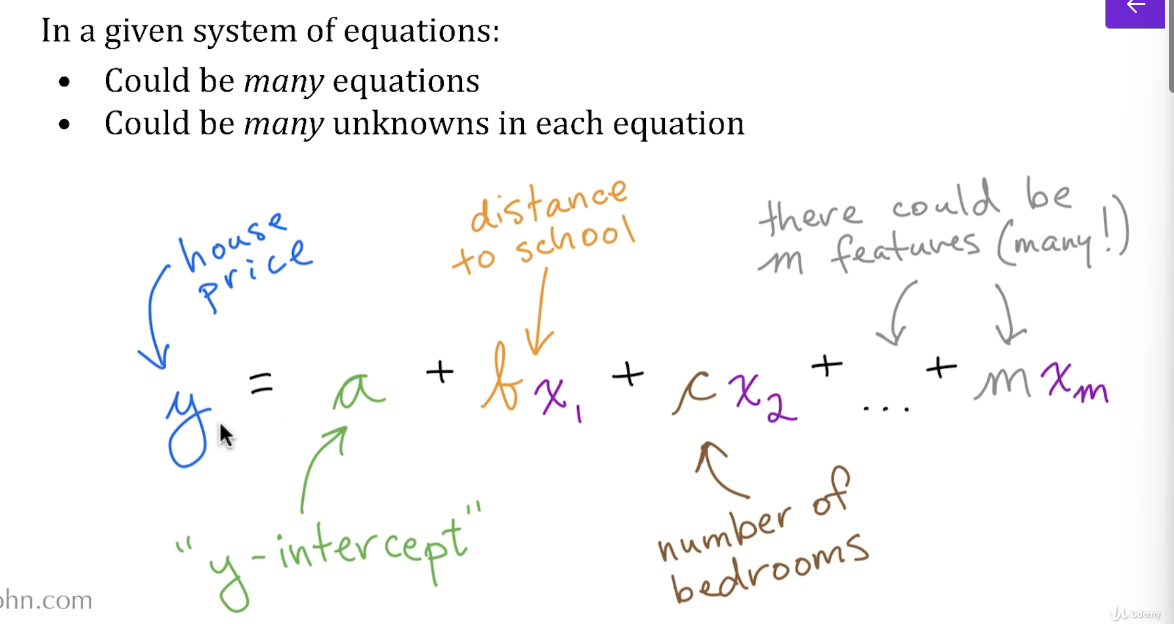 In a given system of equations:
• Could be many equations
• Could be many unknowns in each equation
house
price
distance
to school
there could be
m features (many!)
y = a + bx₁ + cx₂ + ... + mxₘ
"y-intercept"
number of
bedrooms
ohn.com
Udemy